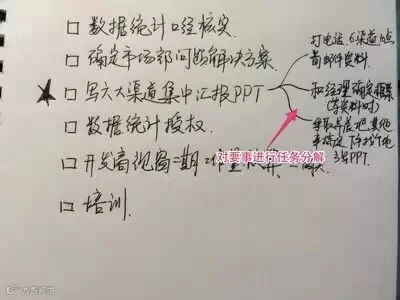 数据统计口径核实
确定市场部问题解决方案.
写六大渠道集中汇报PPT
数据统计授权.
开发商视窗二期工作量
培训.
打电话.6渠道
简邮件资料
和经理确定框架
(等资料时)
争取早点把其他
事搞定
写PPT.
对要事进行任务分解